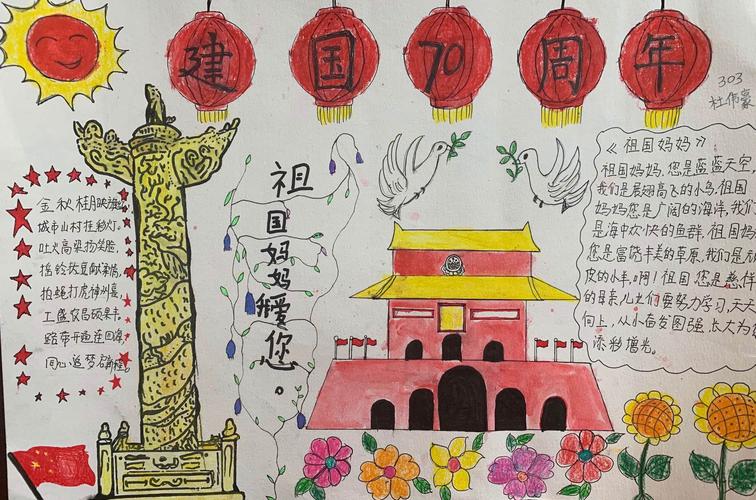 建国70周年
303
杜伟豪
祖国妈妈我爱您。
金秋桂月映海
城市山村挂彩灯。
吐火高梁扬笑脸,
工盛农昌硕果丰,
同心追梦
《祖国妈妈》
祖国妈妈,您是蓝蓝天空,
我们是展翅高飞的小鸟,祖国
妈妈您是广阔的海洋,我们
是海中欢快的鱼群,祖国妈
您是富饶丰美的草原,我们是
皮的小羊,啊!祖国您是慈祥
的母亲,儿女们要努力学习,天天
向上,从小奋发图强,长大为
添彩增光。